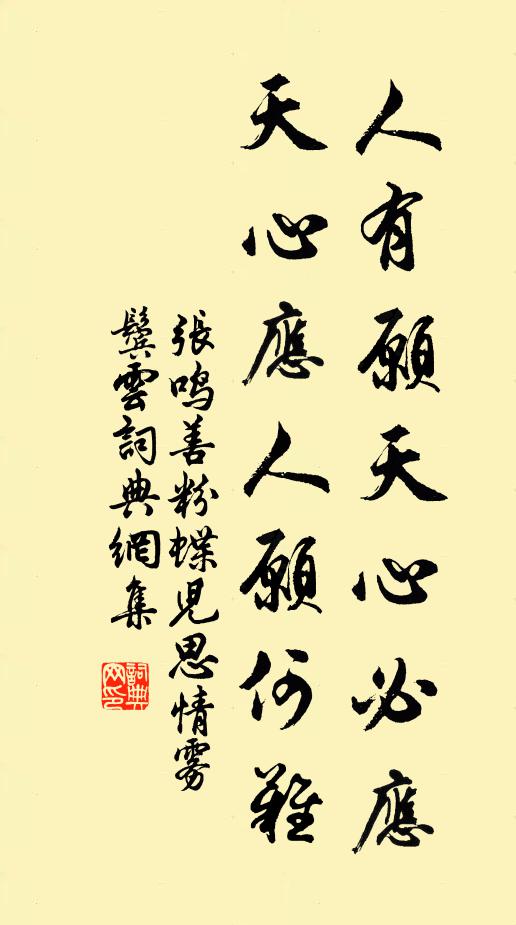 人有願天心必應
天心應人願何難
張鳴善粉蝶兒思情雾
鬓雲詞典網集
詞典
网印